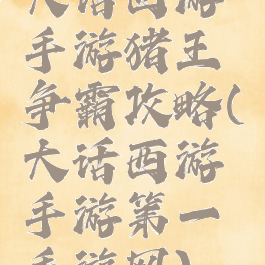 大话西游
手游猪王
争霸攻略(
大话西游
手游第一
手游网)